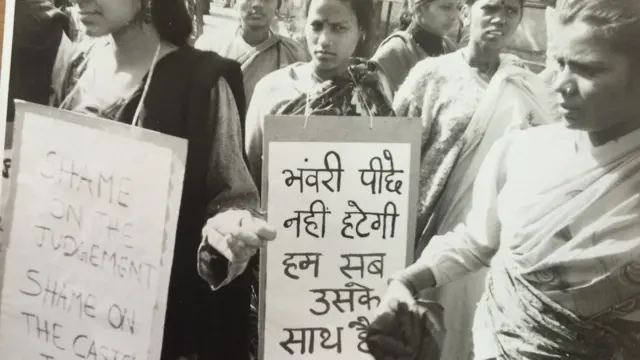 SHAME
ON THE
JUDGEMENT
SHAME ON
THE CASTE
भंवरी पीछे
नहीं हटेगी
हम सब
उसके
साथ है